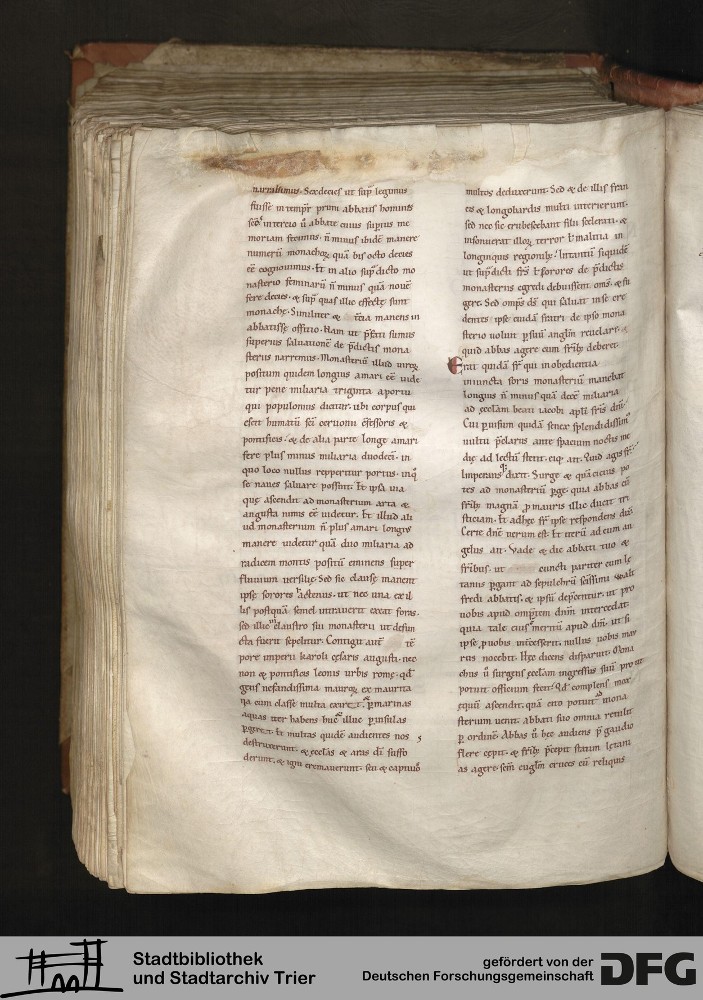 narrabimus. Sexdecies ut sup̄ legimus
fuisse in tempr̄ primi abbatis homines
interelo ū abbate cuius supius me
moriam fecimus. n̄ minus ibidē manere
numerū monachoꝝ quā bis octo decies
eē cognouimus. Et in alio sup̄dicto mo
nasterio feminarū n̄ minus quā nouē
fere decies. & sup̄ quas illic effectę sunt
monachę. Similiter & tēcia manens in
abbatissę offitio. Nam ut p̄fati sumus
superius saluatione de p̄dictis mona
steriis narremus. Monasteriū illud uiroꝝ
positum quidem longius amari eē uide
tur pene miliaria triginta a portu
qui populonius dicitur. ubi corpus qui
escit humatū sc̄i cerbonii cōfessoris &
pontificis. & de alia parte longe amari
fere plus minus miliaria duodeci. in
quo loco nullus repperitur portus. inq̊
se naues saluare possint. Et ipsa uia
quę ascendit ad monasterium arta &
angusta nimis eē uidetur. Et illud ali
ud monasterium n̄ plus amari longius
manere uidetur quā duo miliaria ad
radicem montis positū eminens super
fluuium uersilię. Sed sic clausę manent
ipsę sorores hactenus. ut nec una ex il
lis postquā semel intrauerit exeat foras.
sed illic in claustro sui monasterii ut defun
cta fuerit sepelitur. Contigit autē tē
pore imperii karoli cęsaris augusti. nec
non & pontificis leonis urbis romę. qd̄
gens nefandissima mauroꝝ ex maurita
nia cum classe multa exiret. & p̄ marinas
aquas iter habens huc illuc p̄ insulas
p̄geret. Et multas quidē audientes nos
destruxerunt. & ęcclas & aras dī suffo
derunt. & igni cremauerunt. seu & captiuo
multos deduxerunt. Sed & de illis fran
cis & longobardis multi interierunt.
sed nec sic erubescebant filii scelerati. &
insonuerat illoꝝ terror t malitia in
longinquis regionib; Intantū siquidē
ut sup̄dicti frs̄ t sorores de p̄dictis
monasteriis egredi debuissent oms̄. & fu
gere. Sed omps̄ ds̄ qui saluat in se cre
dentes ipse cuidā fratri de ipso mona
sterio uoluit p̄ suū anglm̄ reuelare. &
quid abbas agere cum frīb; deberet.
Erat quidā fr̄ qui in obedientia
iniuncta foris monasteriū manebat
longius n̄ minus quā decē miliaria
ad ęcclam beati iacobi apli frīs dnī.
Cui p̄ uisum quidā senex splendidissim
uultu p̄clarus ante spacium noctis me
dię ad lectū stetit. eiq; ait. Quid agis fr̄?
Imperansq; dixit. Surge & quā citius po
tes ad monasteriū p̄ge. quia abbas cū
frīb; magnā p̄ mauris illic ducit tri
sticiam. Et adhęc fr̄ ipse respondens dix̄.
Certe dnē uerum est. Et iterū ad eum an
gelus ait. Vade & dic abbati tuo &
frībus. ut cuncti pariter cum le
taniis p̄gant ad sepulchrū sc̄issimi Walt
fredi abbatis. & ipsū dep̄centur. ut pro
uobis apud omp̄tem dnm̄ intercedat.
quia tale eius meritū apud dnm̄. ut si
ipse p̄ uobis int̄cesserit. nullus uobis mau
rus nocebit. Hęc dicens disparuit. Mona
chus ū surgens ęcclam ingressus suū prout
potuit officium fecit. Qd̄ complens mox
equū ascendit. quā cito potuit ad mona
sterium uenit. abbati suo omnia retulit
p̄ ordinē. Abbas ū hęc audiens p̄ gaudio
flere cępit. & frīb; p̄cepit statim letani
as agere. sc̄m euglm̄ cruces cū reliquis
Stadtbibliothek
und Stadtarchiv Trier
gefördert von der
Deutschen Forschungsgemeinschaft
DFG